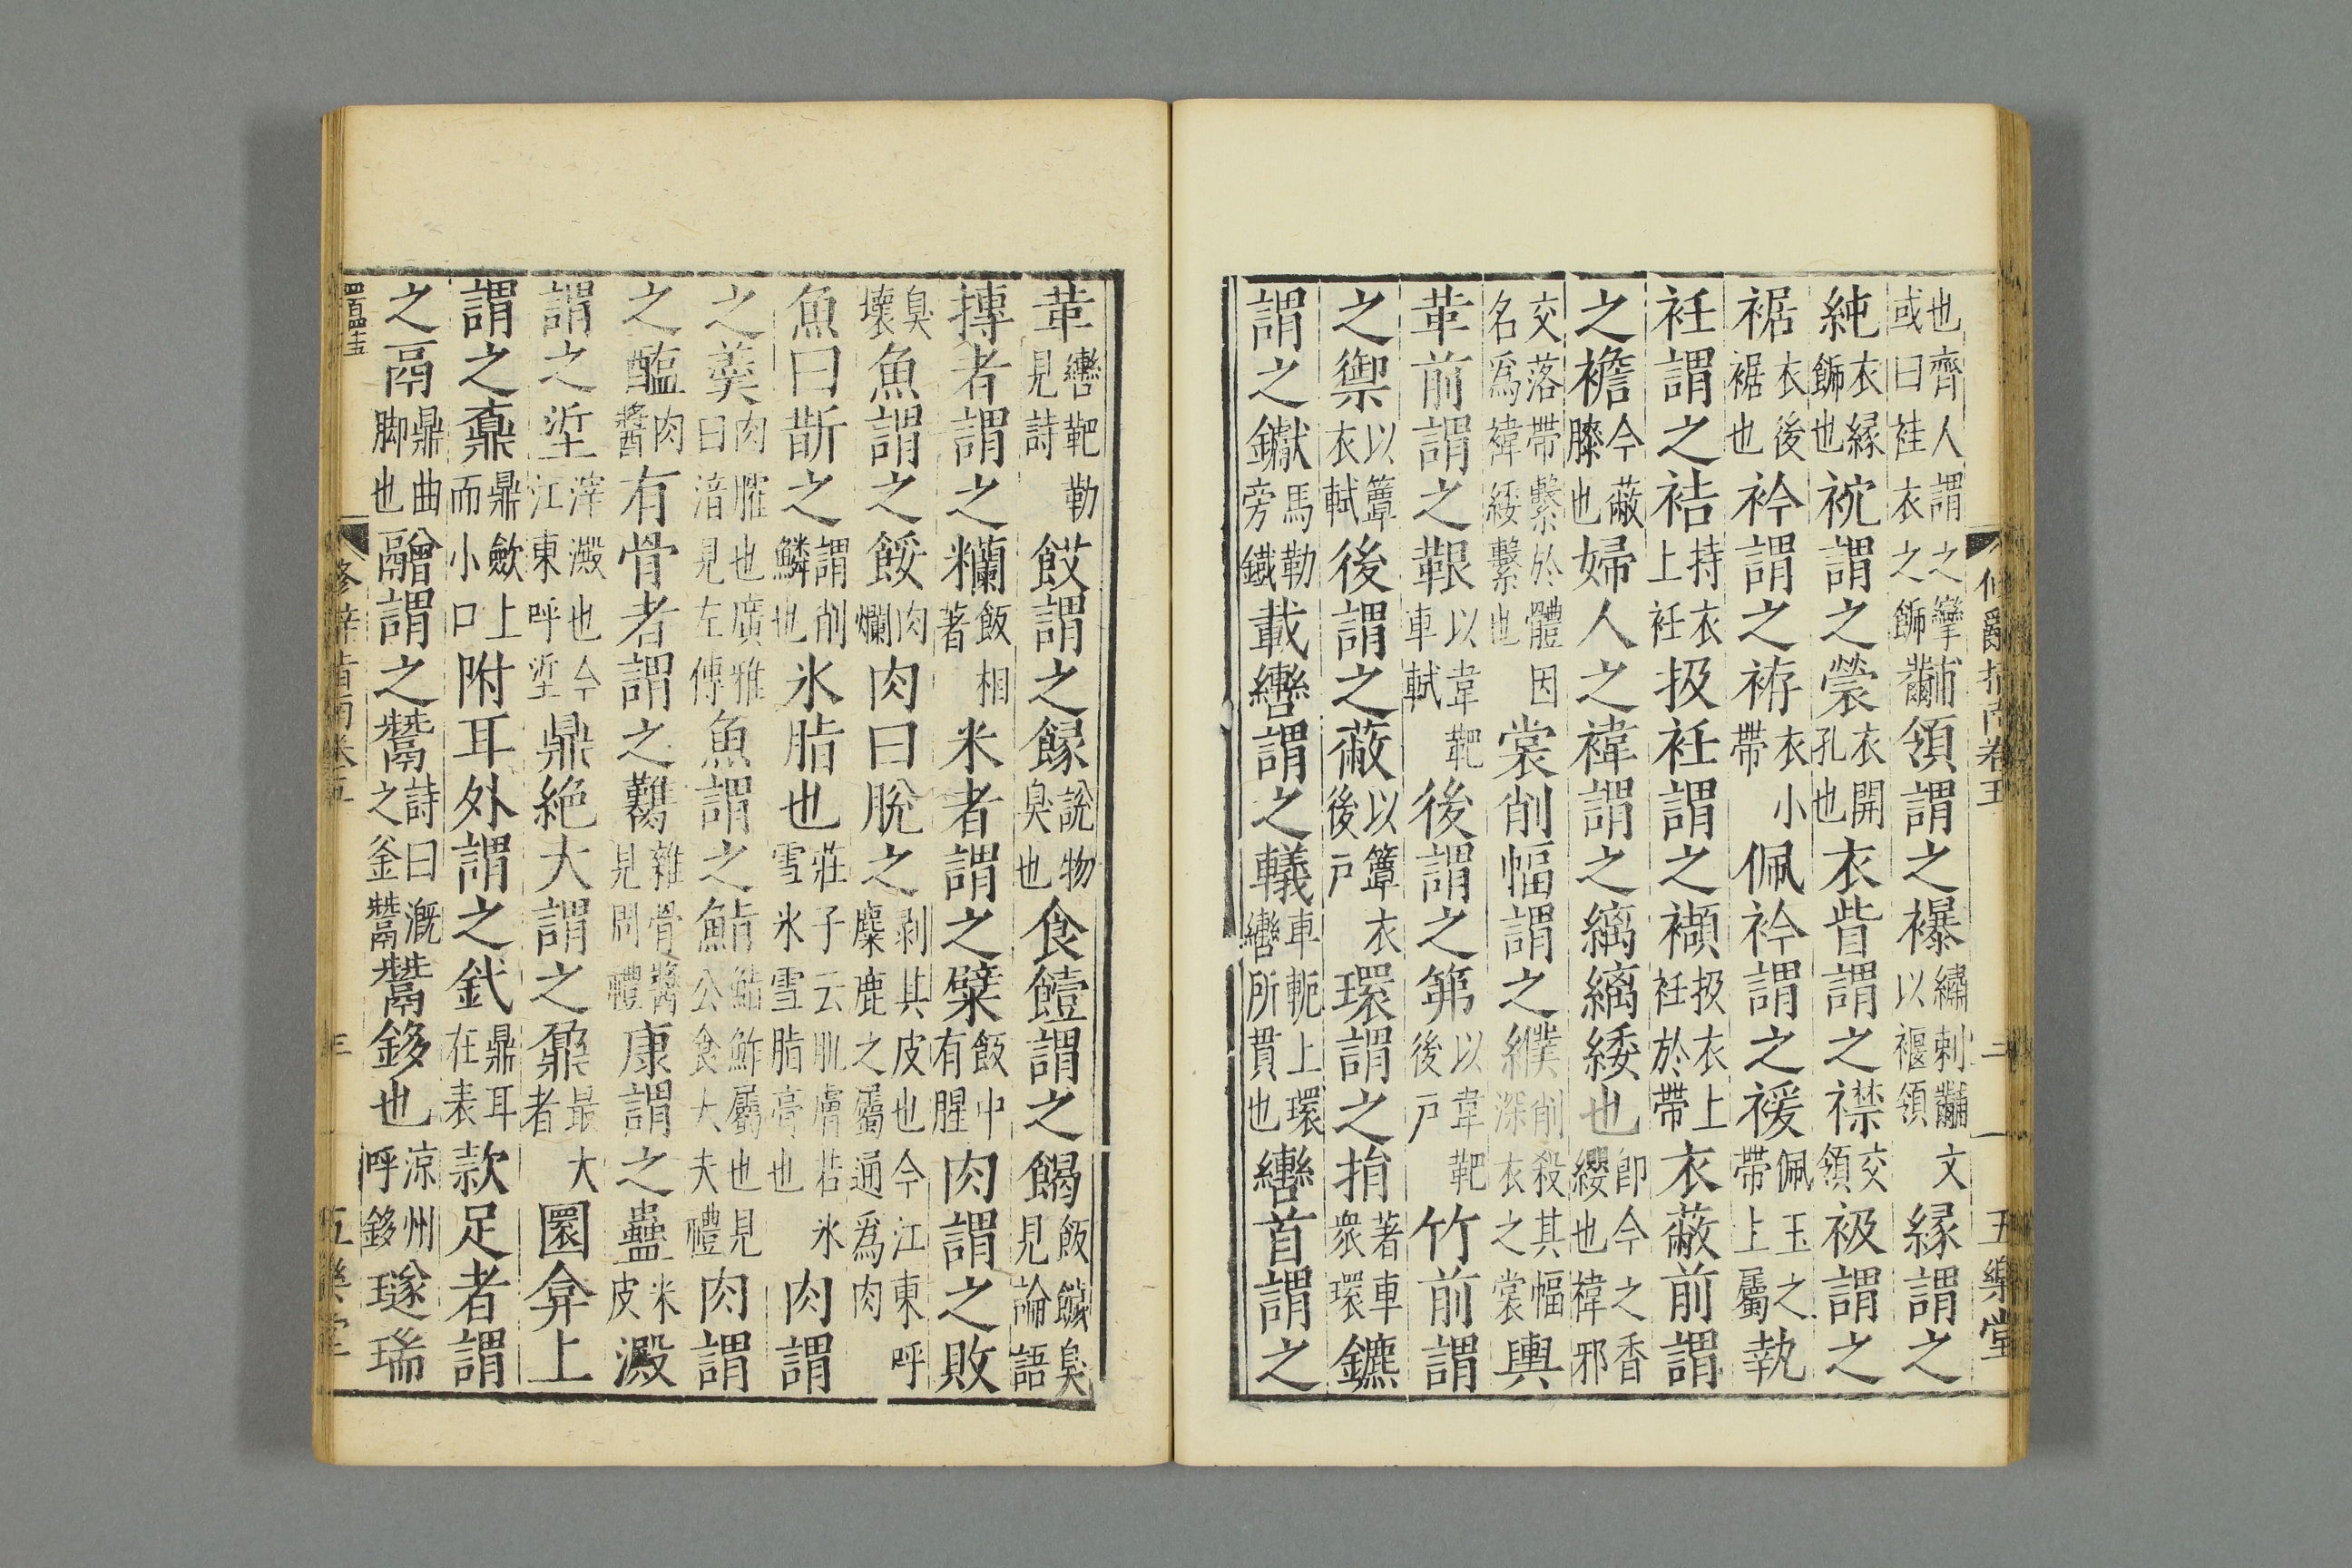 也齊人謂之攣或曰袿衣之飾黼領謂之襮繡刺黼文以褗領緣謂之
純衣緣飾也裞謂之裳衣開孔也衣眥謂之襟交領衱謂之
裾衣後裾也衿謂之袸衣小帶佩衿謂之褑佩玉之帶上屬執
衽謂之袺持衣上衽扱衽謂之襭扱衣上衽於帶衣蔽前謂
之襜今蔽膝也婦人之褘謂之縭縭緌也即今之香纓也褘邪
交落帶繫於體因名爲褘緌繫也裳削幅謂之纀削殺其幅深衣之裳輿
革前謂之鞎以韋靶車軾後謂之笰以韋靶後戶竹前謂
之禦以簟衣軾後謂之蔽以簟衣後戶環謂之捐著車衆環鑣
謂之钀馬勒旁鐵載轡謂之轙車軛上環轡所貫也轡首謂之
革轡靶勒見詩餀謂之餯說物臭也食饐謂之餲飯饖臭見論語
摶者謂之糷飯相著米者謂之檗飯中有腥肉謂之敗
臭壞魚謂之餒肉爛肉曰脫之剥其皮也今江東呼麋鹿之屬通爲肉
魚曰斮之謂削鱗也氷脂也莊子云肌膚若氷雪氷雪脂膏也肉謂
之羹肉臛也廣雅曰湆見左傳魚謂之鮨鮨鮓屬也見公食大夫禮肉謂
之醢肉醬有骨者謂之臡雜骨醬見周禮康謂之蠱米皮澱
謂之垽滓澱也今江東呼垽鼎絕大謂之鼐最大者圜弇上
謂之鼒鼎歛上而小口附耳外謂之釴鼎耳在表款足者謂
之鬲鼎曲脚也䰝謂之鬵詩曰溉之釜鬵鬵鉹也涼州呼鉹璲瑞